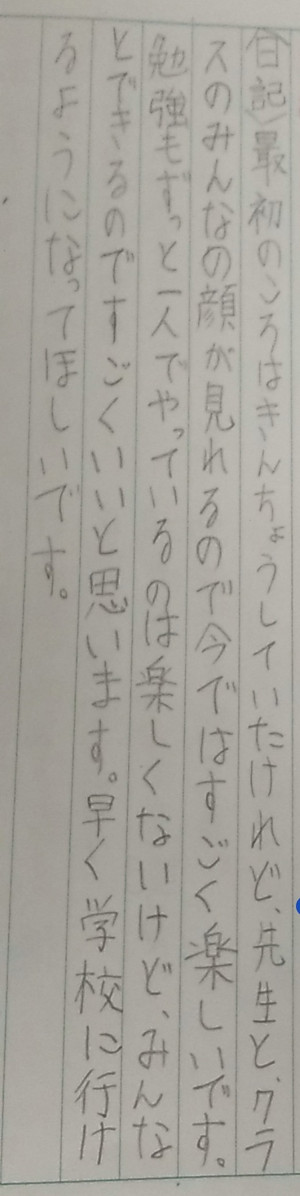 (日記)最初のころはきんちょうしていたけれど、先生と、クラ
スのみんなの顔が見れるので今ではすごく楽しいです。
勉強もずっと一人でやっているのは楽しくないけど、みんな
とできるのですごくいいと思います。早く学校に行け
るようになってほしいです。